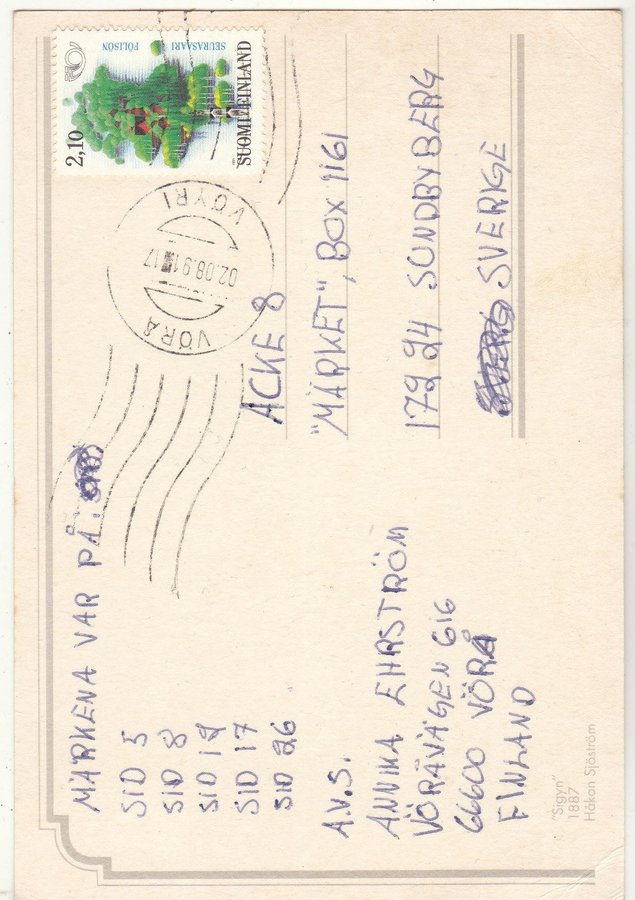 MÄRKENA VAR PÅ:
SID 5
SID 8
SID 12
SID 17
SID 26
A.V.S.
ANNIKA EHRSTRÖM
VÖRÅVÄGEN 616
66600 VÖRÅ
FINLAND
"Sigyn"
1887
Håkan Sjöström
SEURASAARI
FÖLISÖN
2,10
SUOMI-FINLAND
VÖYRI
02.08.91 17
VÖRÅ
ACKE 8
"MÄRKET", BOX 1161
172 24 SUNDBYBERG
SVERIGE